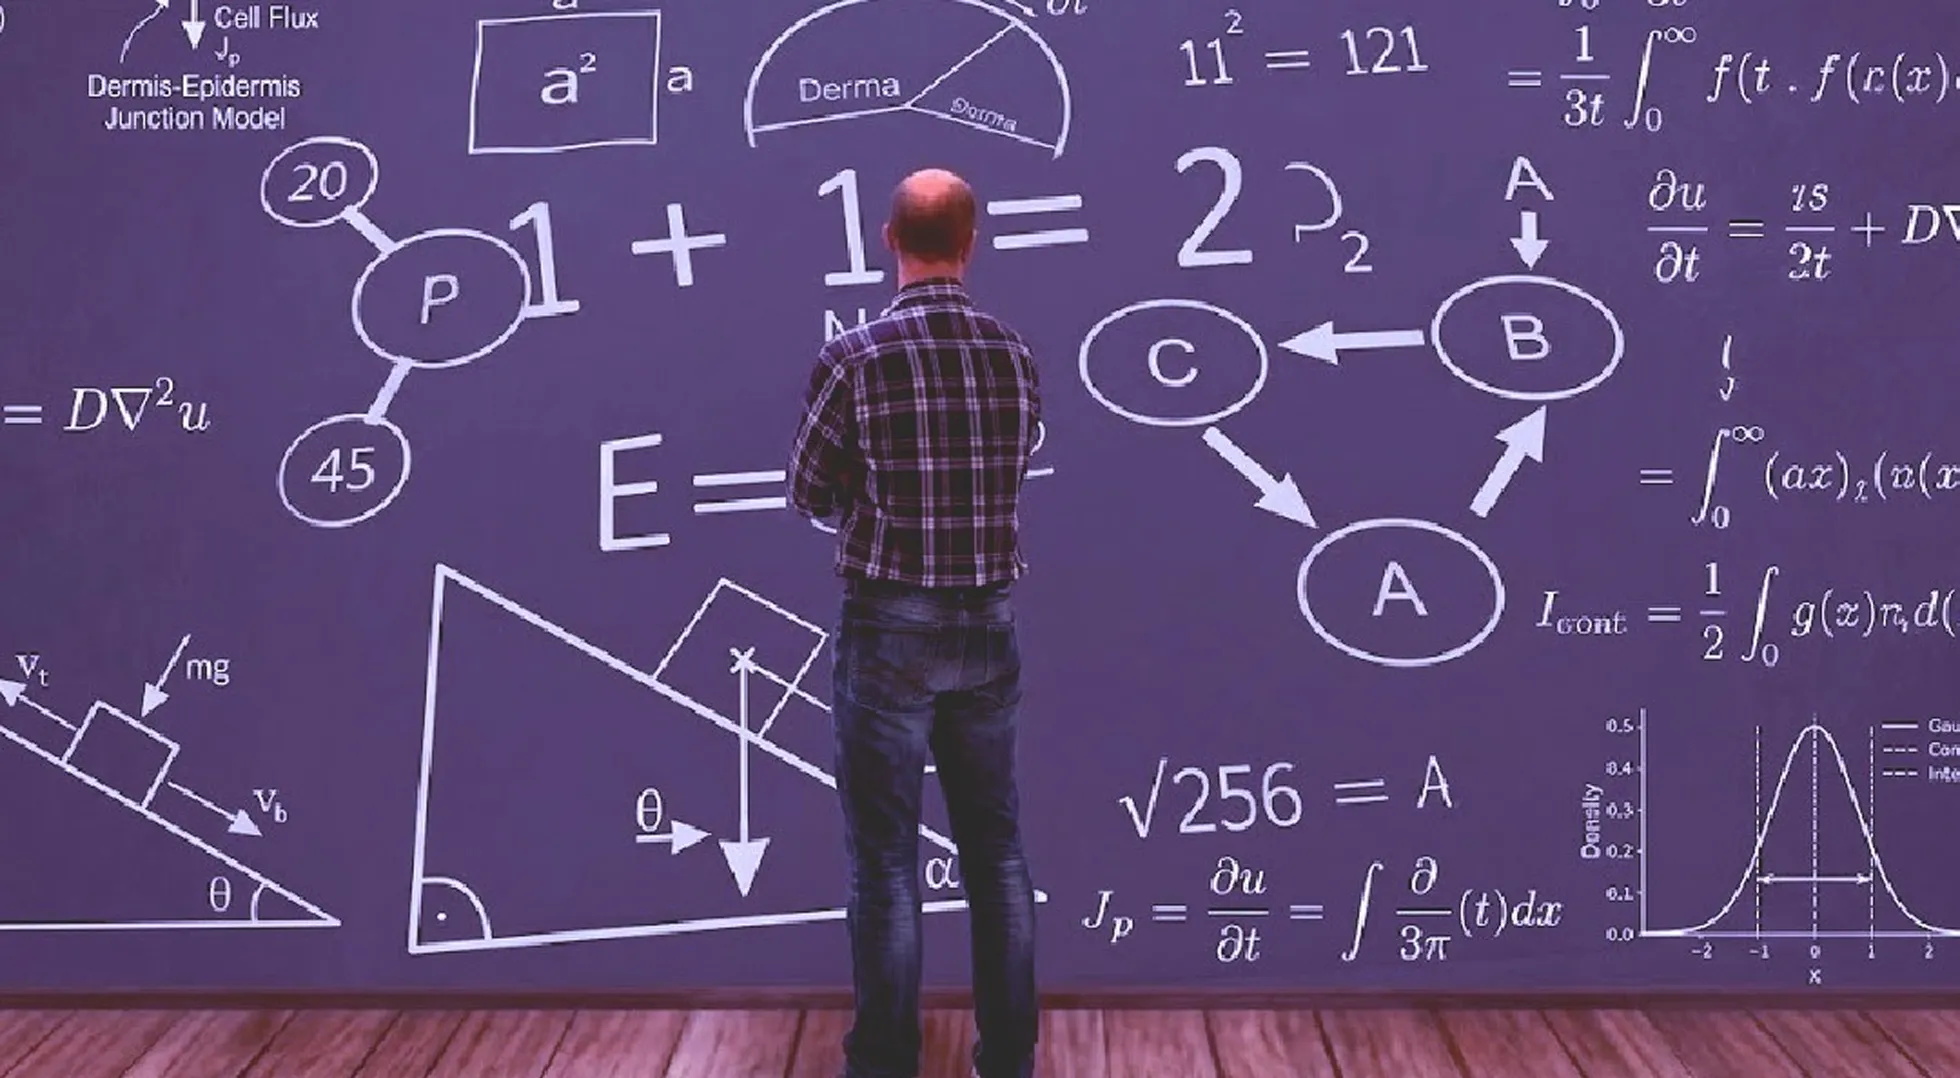 Cell Flux
J_p
Dermis-Epidermis
Junction Model
a²
a
Derma
11² = 121
= 1/3t ∫₀^∞ f(t . f(
20
P
45
1 + 1 = 2
2
A
B
C
A
∂u/∂t = /2t + D∇
= D∇²u
E =
= ∫₀^∞ (ax)
I = 1/2 ∫₀ g(x)
v_t
mg
v_b
θ
θ
α
√256 = A
J_p = ∂u/∂t = ∫ ∂/3π (t)dx
0.5
0.4
0.3
0.2
0.1
0.0
Density
-2 -1 0 1 2
x
Gau
Inte